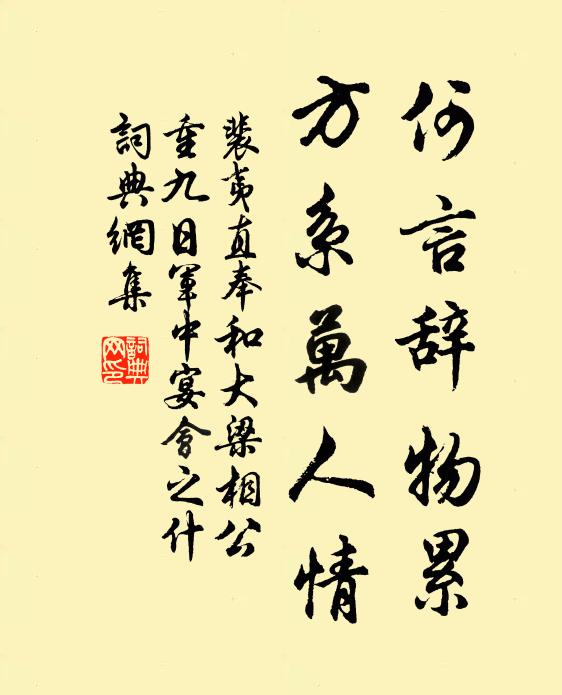 何言辞物累
方系萬人情
裴夷直奉和大梁相公
重九日軍中宴會之什
詞典網集
詞典網印